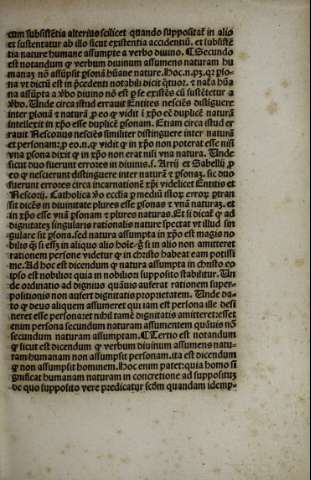 cum subsistētia alterius scilicet quando suppositat̄ in alio
et sustentatur ab illo sicut existentia accidentiū. et subsistē
tia nature humane assumpte a verbo diuino. ¶ Secundo
est notandum ꝙ verbum diuinum assumens naturam hu
manaȝ nō assūpsit ꝑsonā hūane nature. Hoc .n. pȝ. qꝛ ꝑso-
na vt dictū est in p̄cedenti notabili dicit
na assumpta a v̄bo diuino nō est ꝑ se existēs cū sustētetur a
v̄bo. Unde circa istud errauit Entites nesciēs distiguere
inter ꝑsonā ⁊ naturā ꝓ eo ꝙ vidit ī xp̄o eē duplicē naturā
intellexit in xp̄o esse duplicē ꝑsonam. Etiam circa istud er
rauit Nestorius nesciēs similiter distinguere inter naturā
et personam: ꝓ eo .n. ꝙ vidit ꝙ in xp̄o non poterat esse nisi
vna ꝑsona dixit ꝙ in xp̄o non erat nisi vna natura. Unde
sicut duo fuerunt errores in diuinis .s. Arrij et Sabellij ꝓ
eo ꝙ nesciuerunt distinguere inter naturā ⁊ ꝑsonaȝ. sic duo
fuerunt errores circa incarnationē xp̄i videlicet Entitis et
Nescorij. Catholica v̄o ecclīa ꝑ mediū illoꝝ erroꝝ ptran
sit dicēs in diuinitate plures esse ꝑsonas ⁊ vnā naturaȝ. et
in xp̄o esse vnā ꝑsonam ⁊ plures naturas. Et si dicat̄ ꝙ ad
dignitateȝ singularis rationalis nature spectat vt illud sin
gulare sit ꝑsona. sed natura assumpta in xp̄o est magis no
bilis ꝙ̄ si eēt in aliquo alio hoīe. ꝙ̄ si in alio non amitteret
rationem persone videtur ꝙ in christo habeat eam potissi
me. Ad hoc est dicendum ꝙ natura assumpta in christo eo
ipso est nobilior quia in nobiliori supposito stabilitur. Un
de ordinatio ad dignius quāuis auferat rationem super-
positionis non aufert dignitatis proprietatem. Unde da-
to ꝙ deus aliquem assumeret qui iam est persona ille desi
neret esse persona: et nihil tamē dignitatis amitteret: esset
enim persona secundum naturam assumentem quāuis nō
secundum naturam assumptam. ¶ Tertio est notandum
ꝙ sicut est dicendum ꝙ verbum diuinum assumens natu-
ram humanam non assumpsit personam. ita est dicendum
ꝙ non assumpsit hominem. Hoc enim patet: quia homo si
gnificat humanam naturam in concretione ad suppositūȝ
de quo supposito vere predicatur scd̄m quandam idemp-